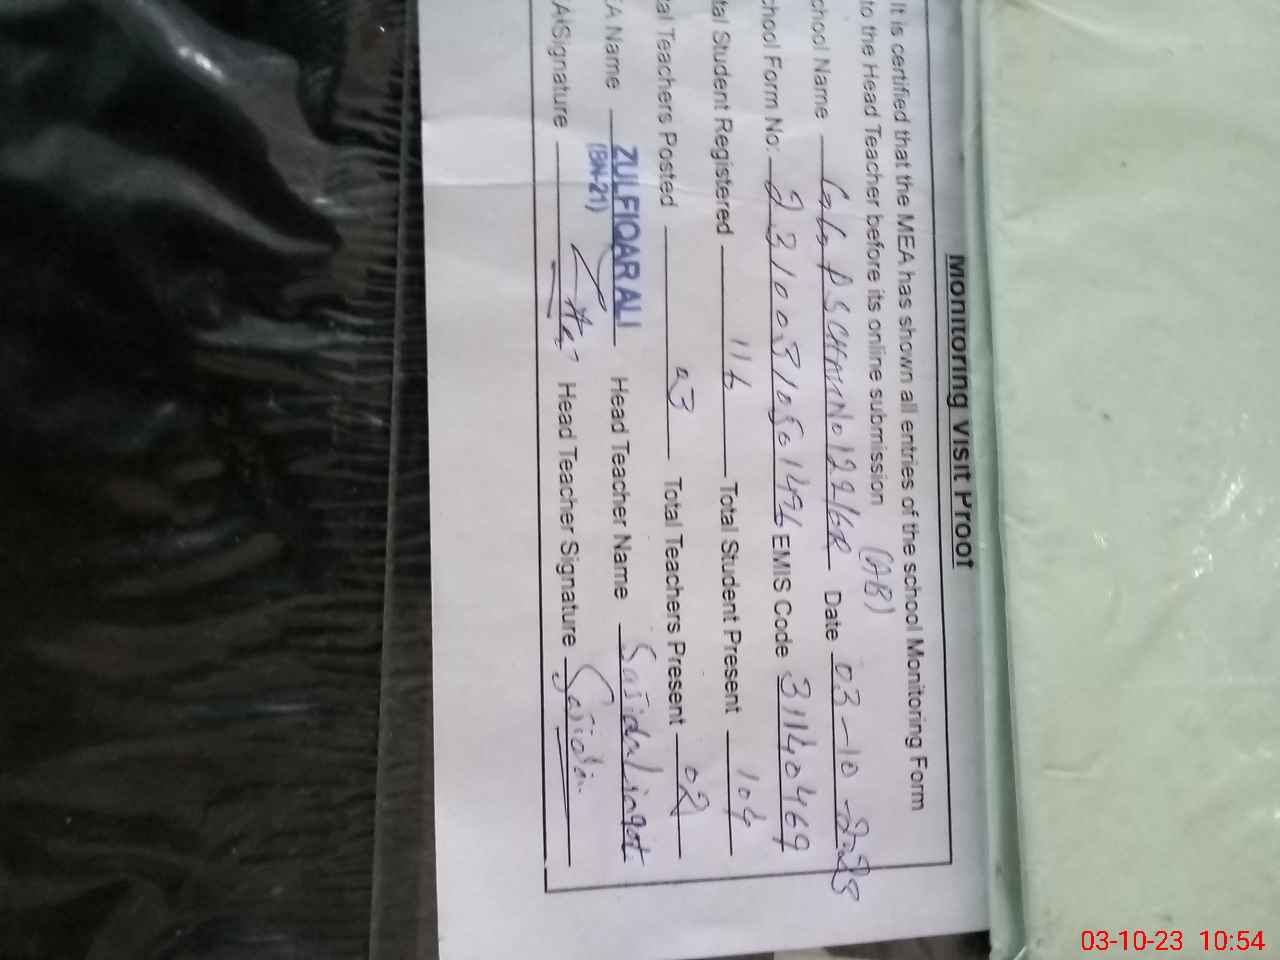 Monitoring Visit Proof
It is certified that the MEA has shown all entries of the school Monitoring Form
to the Head Teacher before its online submission (AB)
chool Name 122/6R Date 03-10-2023
chool Form No: EMIS Code 31140469
tal Student Registered 116 Total Student Present 104
tal Teachers Posted 03 Total Teachers Present 02
EA Name ZULFIQAR ALI Head Teacher Name
(BN-21)
A Signature Head Teacher Signature
03-10-23 10:54